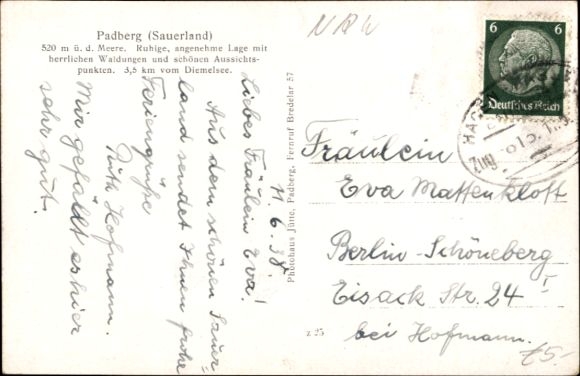 Padberg (Sauerland)
520 m ü. d. Meere. Ruhige, angenehme Lage mit
herrlichen Waldungen und schönen Aussichts-
punkten. 3,5 km vom Diemelsee.
11.6.38.
Liebes Fräulein Eva!
Aus dem schönen Sauer-
land sendet Ihnen frohe
Feriengrüße
Ruth Hofmann.
Mir gefällt es hier
sehr gut.
Photohaus Jütte, Padberg, Fernruf Bredelar 57
z 25
NRW
6 6
Deutsches Reich
Zug
Fräulein
Eva Mattenkloft
Berlin-Schöneberg
Eisack Str. 24 I
bei Hofmann.
€5.-